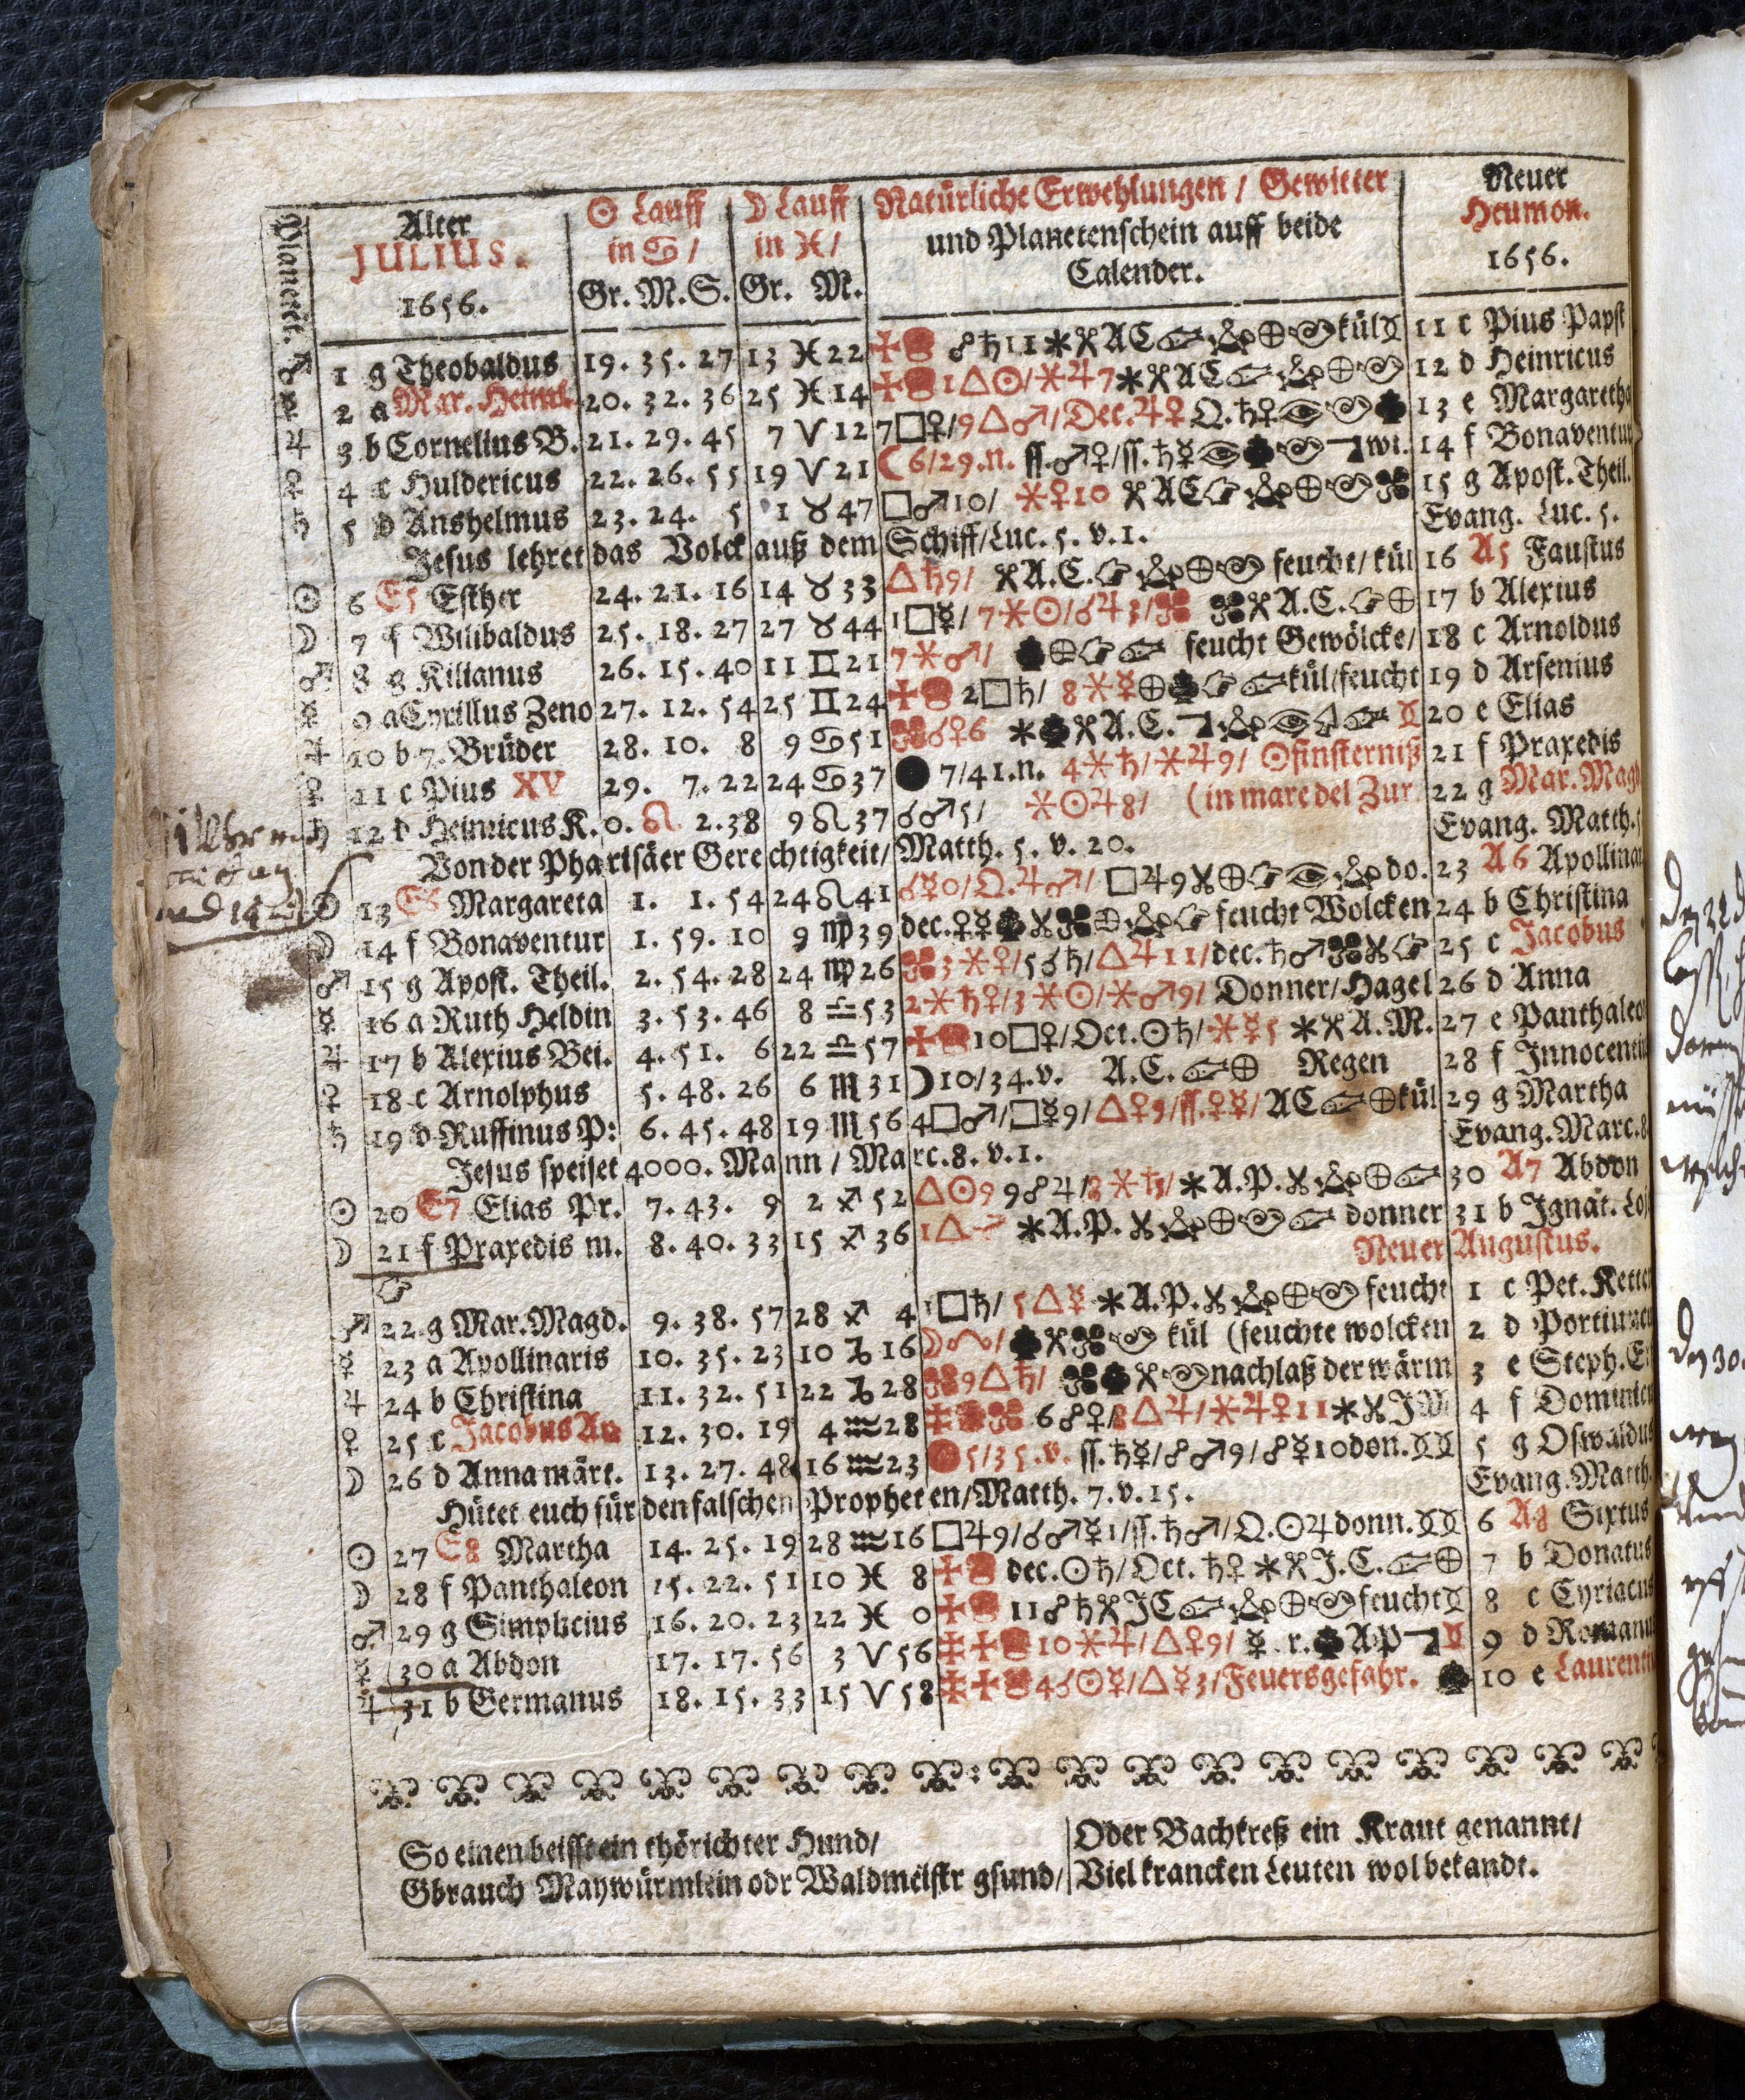 Planetē.
Alter
JULIUS.
1656.
☉ Lauff
in ♋ /
Gr. M. S.
☽ Lauff
in ♓ /
Gr. M.
Natürliche Erwehlungen / Gewitter
und Planetenschein auff beide
Calender.
Neuer
Heumon.
1656.
♂ 1 g Theobaldus 19. 35. 27 13 ♓ 22 ☍ ♄ 11 AC kül 11 c Pius Papst
☿ 2 a Mar. Heims. 20. 32. 36 25 ♓ 14 1 △ ☉ / ⚹ ♃ 7 AC 12 d Heinricus
♃ 3 b Cornelius B. 21. 29. 45 7 ♈ 12 7 □ ♀ / 9 △ ♂ / Dec. ♃ ♀ Q. ♄ ♀ 13 e Margaretha
♀ 4 c Huldericus 22. 26. 55 19 ♈ 21 ☾ 6/29. n. ss. ♂ ♀ / ss. ♄ ☿ wi. 14 f Bonaventur
♄ 5 d Anshelmus 23. 24. 5 1 ♉ 47 □ ♂ 10 / ⚹ ♀ 10 AC 15 g Apost. Theil.
Jesus lehret das Volck auß dem Schiff / Luc. 5. v. 1. Evang. Luc. 5.
☉ 6 E5 Esther 24. 21. 16 14 ♉ 33 △ ♄ 9 / A. C. feucht / kül 16 A5 Faustus
☽ 7 f Wilibaldus 25. 18. 27 27 ♉ 44 1 □ ☿ / 7 ⚹ ☉ / ☌ ♃ 3 / A. C. 17 b Alexius
♂ 8 g Kilianus 26. 15. 40 11 ♊ 21 7 ⚹ ♂ / feucht Gewölcke / 18 c Arnoldus
☿ 9 a Cyrillus Zeno 27. 12. 54 25 ♊ 24 2 □ ♄ / 8 ⚹ ☿ kül / feucht 19 d Arsenius
♃ 10 b 7. Brüder 28. 10. 8 9 ♋ 51 ☌ ♀ 6 A. C. 20 e Elias
♀ 11 c Pius XV 29. 7. 22 24 ♋ 37 ● 7/41. n. 4 ⚹ ♄ / ⚹ ♃ 9 / ☉finsterniß 21 f Praxedis
♄ 12 d Heinricus K. 0. ♌ 2. 38 9 ♌ 37 ☌ ♂ 5 / ⚹ ☉ ♃ 8 / (in mare del Zur. 22 g Mar. Mag
Von der Pharisäer Gerechtigkeit / Matth. 5. v. 20. Evang. Matth. 5
☉ 13 E6 Margareta 1. 1. 54 24 ♌ 41 ☌ ☿ 0 / Q. ♃ ♂ / □ ♃ 9 do. 23 A6 Apollinar
☽ 14 f Bonaventur 1. 59. 10 9 ♍ 39 dec. ♀ ☿ feucht Wolcken 24 b Christina
♂ 15 g Apost. Theil. 2. 54. 28 24 ♍ 26 3 ⚹ ♀ / 5 ☌ ♄ / △ ♃ 11 / dec. ♄ ♂ 25 c Jacobus
☿ 16 a Ruth Heldin 3. 53. 46 8 ♎ 53 2 ⚹ ♄ ♀ / 3 ⚹ ☉ / ⚹ ♂ 9 / Donner / Hagel 26 d Anna
♃ 17 b Alexius Bei. 4. 51. 6 22 ♎ 57 10 □ ♀ / Oct. ☉ ♄ / ⚹ ☿ 5 A. M. 27 e Panthaleo
♀ 18 c Arnolphus 5. 48. 26 6 ♏ 31 ☽ 10/34. v. A. C. Regen 28 f Innocenti
♄ 19 d Ruffinus P: 6. 45. 48 19 ♏ 56 4 □ ♂ / □ ☿ 9 / △ ♀ 9 / ss. ♀ ☿ / AC kül 29 g Martha
Jesus speiset 4000. Mann / Marc. 8. v. 1. Evang. Marc. 8
☉ 20 E7 Elias Pr. 7. 43. 9 2 ♐ 52 △ ☉ 9 9 ☍ ♃ / 8 ⚹ ♄ / A. P. 30 A7 Abdon
☽ 21 f Praxedis m. 8. 40. 33 15 ♐ 36 1 △ A. P. donner 31 b Ignat. Loj
Neuer Augustus.
♂ 22 g Mar. Magd. 9. 38. 57 28 ♐ 4 1 □ ♄ / 5 △ ☿ A. P. feucht 1 c Pet. Ketten
☿ 23 a Apollinaris 10. 35. 23 10 ♑ 16 kül (feuchte wolcken 2 d Portiunc
♃ 24 b Christina 11. 32. 51 22 ♑ 28 9 △ ♄ / nachlaß der wärm 3 e Steph. E
♀ 25 c Jacobus Ap 12. 30. 19 4 ♒ 28 6 ☍ ♀ / 8 △ ♃ / ⚹ ♃ ♀ 11 JM 4 f Dominic
☽ 26 d Anna märt. 13. 27. 48 16 ♒ 23 5/35. v. ss. ♄ ☿ / ☍ ♂ 9 / ☍ ☿ 10 don. 5 g Oswaldus
Hütet euch für den falschen Propheten / Matth. 7. v. 15. Evang. Matth.
☉ 27 E8 Martha 14. 25. 19 28 ♒ 16 □ ♃ 9 / ☌ ♂ ☿ 1 / ss. ♄ ♂ / Q. ☉ ♃ donn. 6 A8 Sixtus
☽ 28 f Panthaleon 15. 22. 51 10 ♓ 8 dec. ☉ ♄ / Oct. ♄ ♀ J. C. 7 b Donatus
♂ 29 g Simplicius 16. 20. 23 22 ♓ 0 11 ☍ ♄ JC feucht 8 c Cyriacus
☿ 30 a Abdon 17. 17. 56 3 ♈ 56 10 ⚹ ♃ / △ ♀ 9 / ☿. r. AP 9 d Romanu
♃ 31 b Germanus 18. 15. 33 15 ♈ 58 4 ☌ ☉ ☿ / △ ☿ 3 / Feuersgefahr. 10 e Laurenti
So einen beisst ein thörichter Hund /
Gbrauch Maywürmlein odr Waldmeistr gsund /
Oder Bachkreß ein Kraut genannt /
Viel krancken Leuten wol bekandt.